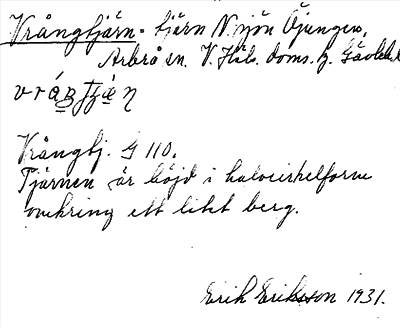 Vrångtjärn - tjärn N. sjön Öjungen,
Arbrå sn. V. Häls. doms. h. Gävleb.
Vrångtj. G 110.
Tjärnen är böjd i halvcirkelform
omkring ett litet berg.
Erik Eriksson 1931.